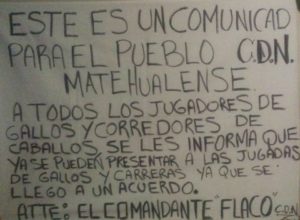 ESTE ES UN COMUNICAD
PARA EL PUEBLO C.D.N.
MATEHUALENSE.
A TODOS LOS JUGADORES DE
GALLOS Y CORREDORES DE
CABALLOS SE LES INFORMA QUE
YA SE PUEDEN PRESENTAR A LAS JUGADAS
DE GALLOS Y CARRERAS YA QUE SE
LLEGO A UN ACUERDO.
ATTE: EL COMANDANTE "FLACO" C.D.N